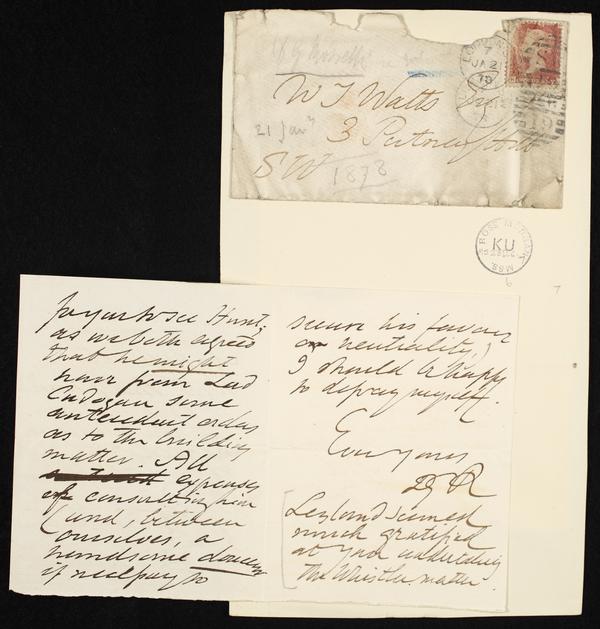 LONDON
7
JA 21
78
W T Watts Esq
21 Jany
3 Putney Hill
SW
1878
MSS.
KU
6
7
for you to see Hunt,
as we both agreed
that he might
have from Lord
Cadogan some
antecedent orders
as to the building
matter. All
expenses
of consulting him
(and, between
ourselves, a
handsome douceur
if need be, to
secure his favour
or neutrality,)
I should be happy
to defray myself.
Ever yours
DGR
Leyland seemed
much gratified
at your undertaking
the Whistler matter.